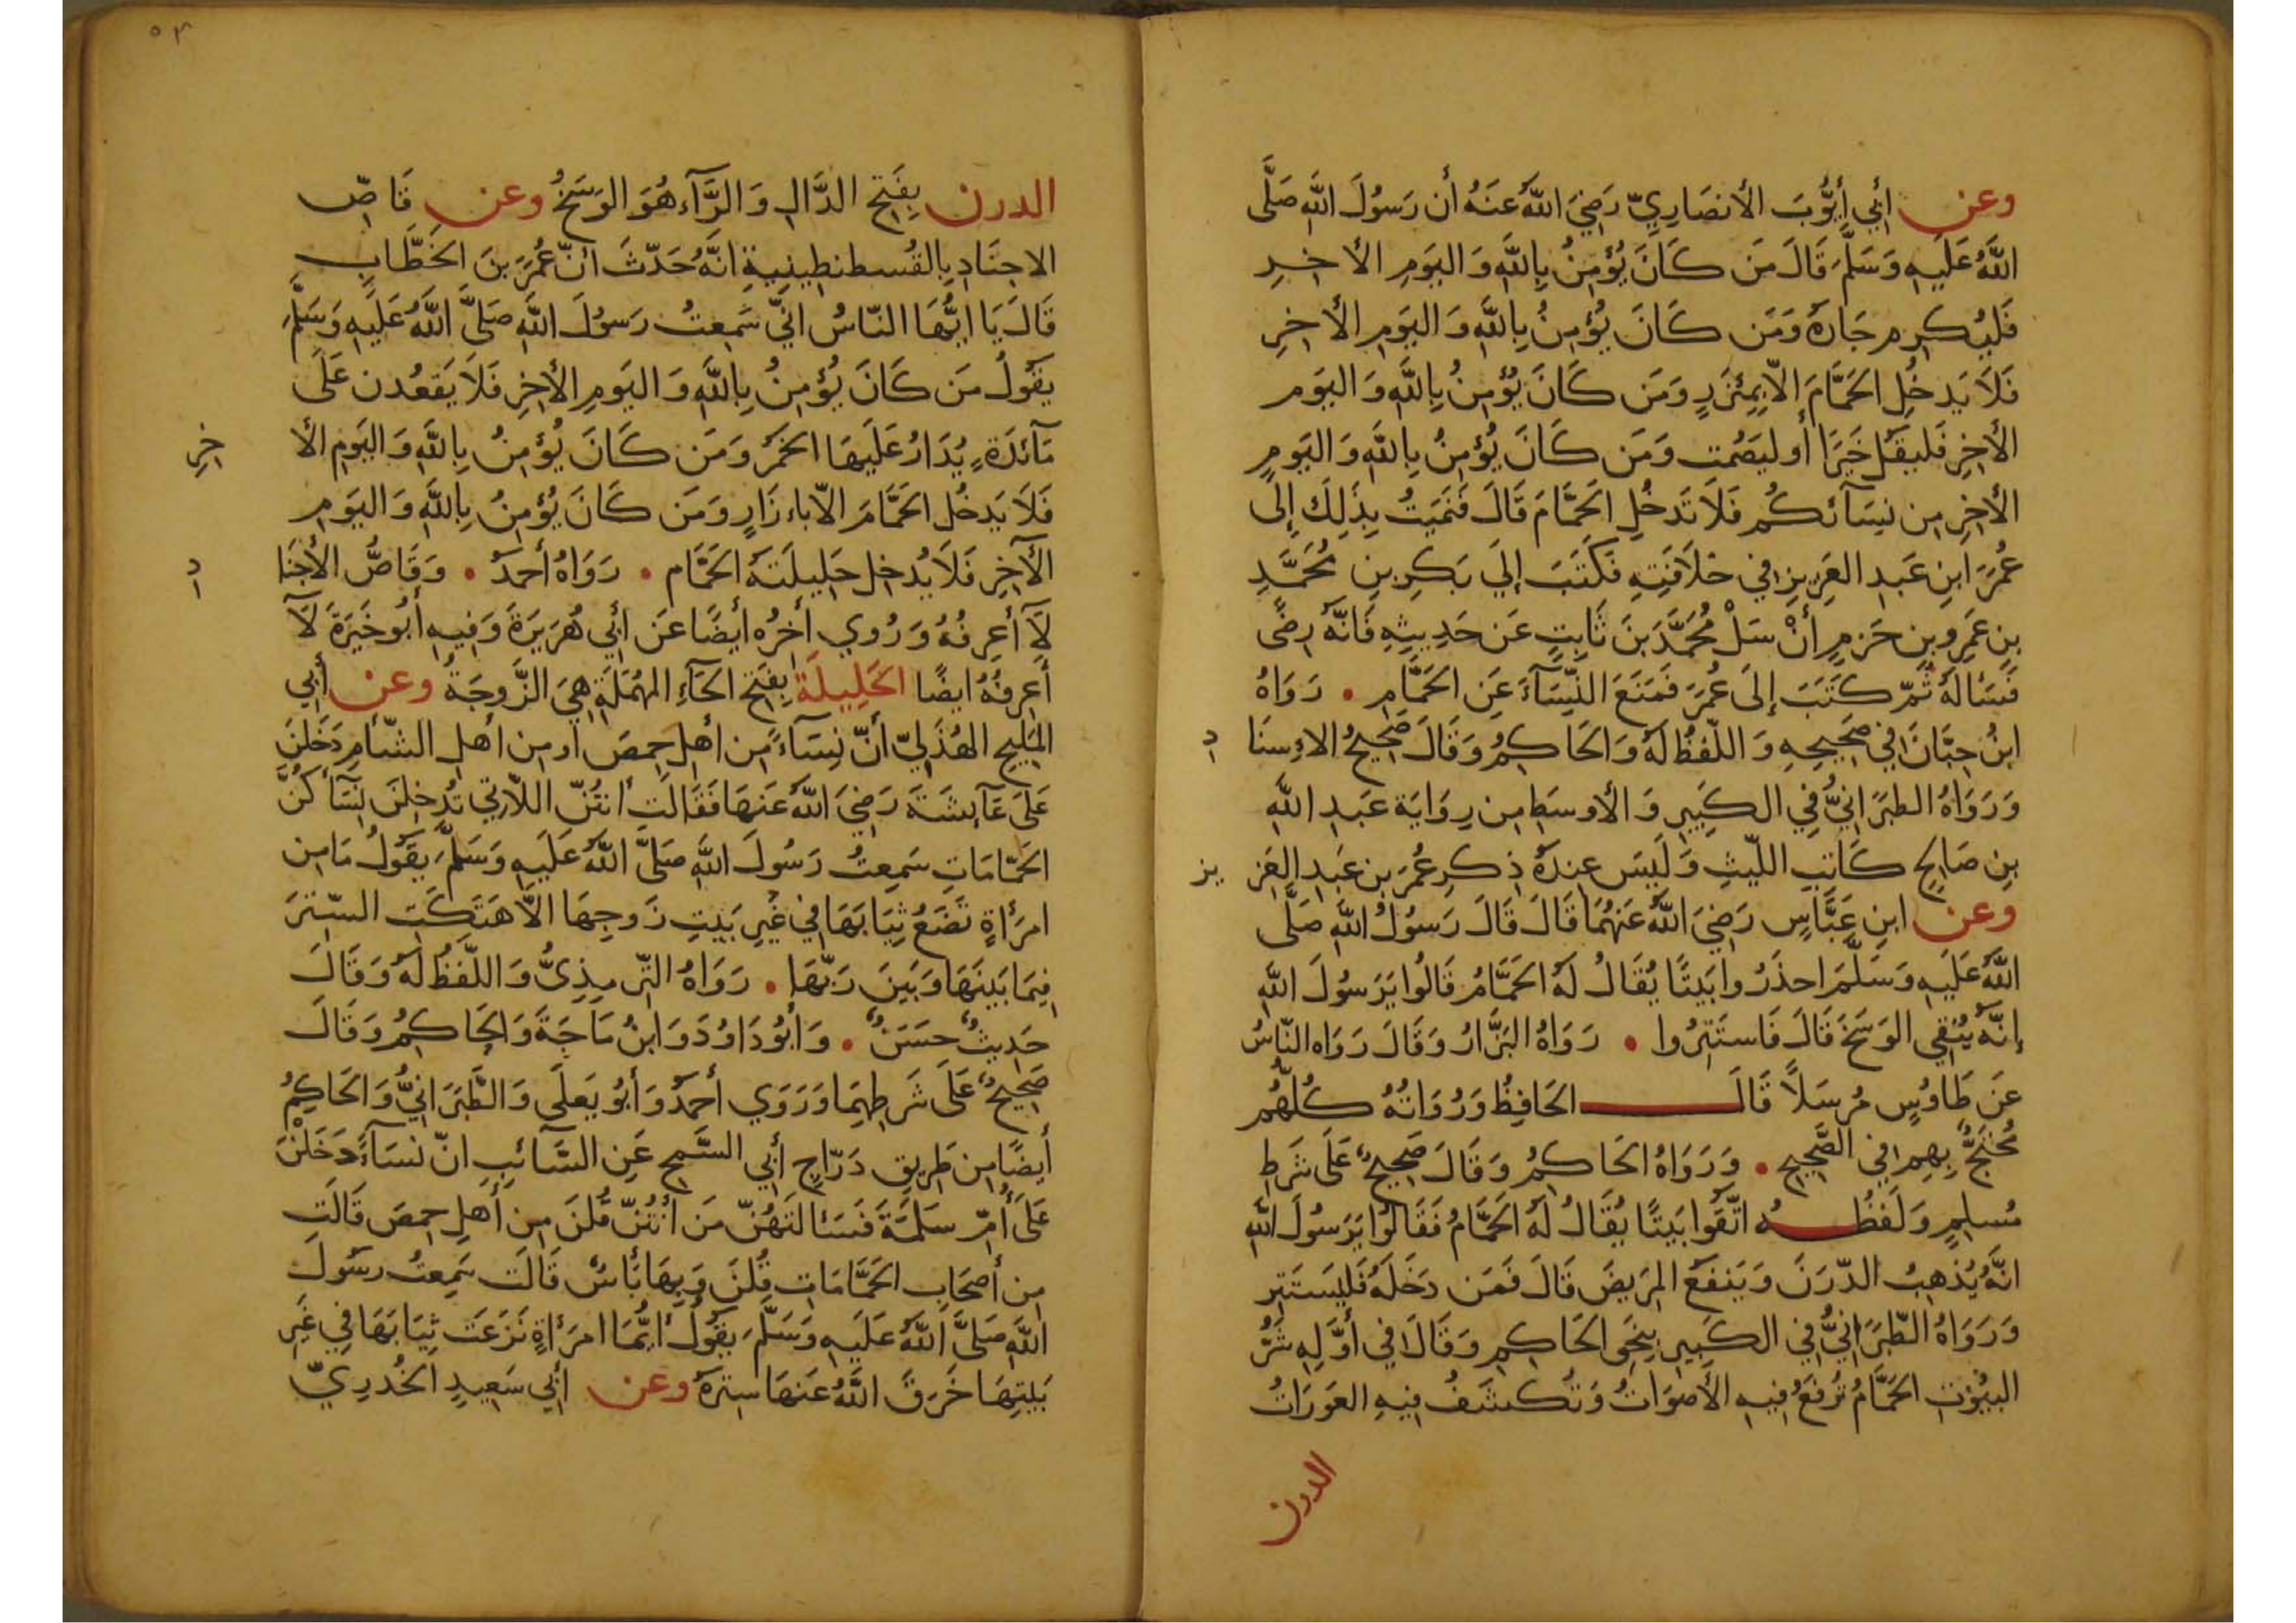 وعن أبي أيوب الأنصاري رضي الله عنه أن رسول الله صلى
الله عليه وسلم قال من كان يؤمن بالله واليوم الأخر
فليكرم جاره ومن كان يؤمن بالله واليوم الأخر
فلا يدخل الحمام إلا بمئزر ومن كان يؤمن بالله واليوم
الأخر فليقل خيرا أو ليصمت ومن كان يؤمن بالله واليوم
الأخر من نسآئكم فلا تدخل الحمام قال فنميت بذلك إلى
عمر ابن عبد العزيز في خلافته فكتب إلي بكر بن محمد
بن عمرو بن حزم أن سل محمد بن ثابت عن حديثه فانه رضى
فسأله ثم كتب إلى عمر فمنع النسآء عن الحمام . رواه
ابن حبان في صحيحه واللفظ له والحاكم وقال صحيح الاسنا د
ورواه الطبراني في الكبير والأوسط من رواية عبد الله
بن صالح كاتب الليث وليس عنده ذكر عمر بن عبد العز يز
وعن ابن عباس رضي الله عنهما قال قال رسول الله صلى
الله عليه وسلم احذروا بيتا يقال له الحمام قالوا يرسول الله
إنه ينقي الوسخ قال فاستتروا . رواه البزار وقال رواه الناس
عن طاوس مرسلا قال الحافظ ورواته كلهم
محتج بهم في الصحيح . ورواه الحاكم وقال صحيح على شرط
مسلم ولفظه اتقوا بيتا يقال له الحمام فقالوا يرسول الله
انه يذهب الدرن وينفع المريض قال فمن دخله فليستتر
ورواه الطبراني في الكبير بنحو الحاكم وقال في أوله شر
البيوت الحمام ترفع فيه الأصوات وتكشف فيه العورات
الدرن
٥٣
الدرن بفتح الدال والرآء هو الوسخ وعن قاص
الاجناد بالقسطنطينية انه حدث ان عمر بن الخطاب
قال يا ايها الناس اني سمعت رسول الله صلى الله عليه وسلم
يقول من كان يؤمن بالله واليوم الأخر فلا يقعدن على
مآئدة يدار عليها الخمر ومن كان يؤمن بالله واليوم الأ خر
فلا يدخل الحمام الا باءزار ومن كان يؤمن بالله واليوم
الآخر فلا يدخل حليلته الحمام . رواه أحمد . وقاص الأجنا د
لآ أعرفه وروي أخره أيضا عن أبي هريرة وفيه أبو خيرة لآ
أعرفه ايضا الحليلة بفتح الحآء المهملة هي الزوجة وعن أبي
المليح الهذلي أن نسآء من أهل حمص او من أهل الشأم دخلن
على عآيشة رضي الله عنها فقالت أنتن اللاتي تدخلن نسآأكن
الحمامات سمعت رسول الله صلى الله عليه وسلم يقول ما من
امرأة تضع ثيابها في غير بيت زوجها الا هتكت الستر
فيما بينها وبين ربها . رواه الترمذي واللفظ له وقال
حديث حسن . وأبو داود وابن ماجة والحاكم وقال
صحيح على شرطهما وروي أحمد وأبو يعلى والطبراني والحاكم
أيضا من طريق دراج أبي السمح عن السائب ان نسآء دخلن
على أم سلمة فسئالتهن من أنتن قلن من أهل حمص قالت
من أصحاب الحمامات قلن وبها بأس قالت سمعت رسول
الله صلى الله عليه وسلم يقول أيما امرأة نزعت ثيابها في غير
بيتها خرق الله عنها ستره وعن أبي سعيد الخدري